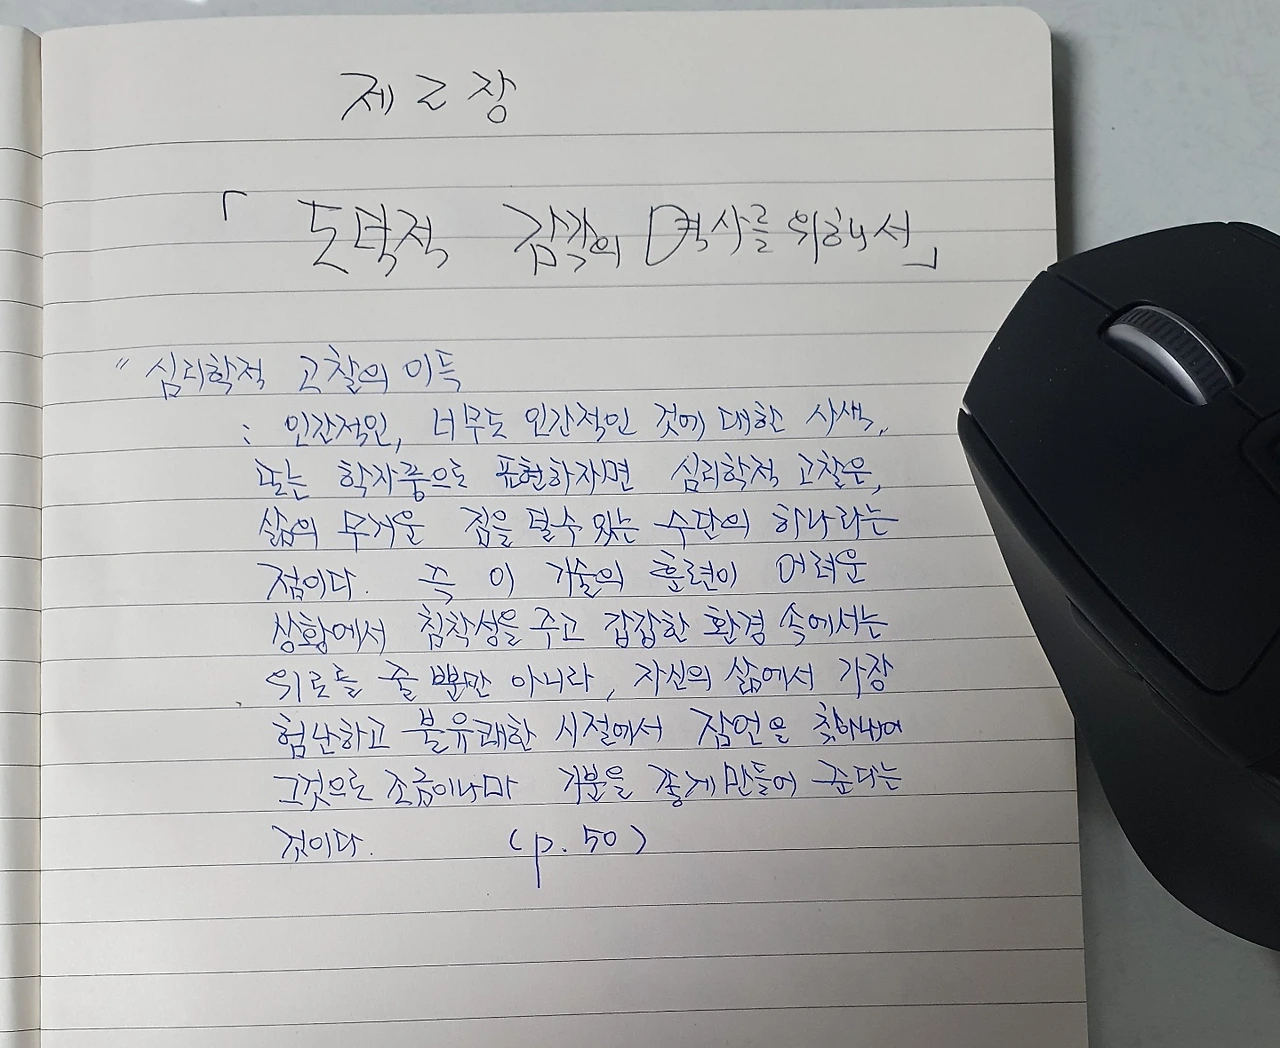 제 2 장
「 도덕적 감각의 역사를 위해서」
" 심리학적 고찰의 이득
: 인간적인, 너무도 인간적인 것에 대한 사색,
또는 학자풍으로 표현하자면 심리학적 고찰은,
삶의 무거운 짐을 덜수 있는 수단의 하나라는
점이다. 즉 이 기술의 훈련이 어려운
상황에서 침착성을 주고 갑갑한 환경 속에서는
위로를 줄 뿐만 아니라, 자신의 삶에서 가장
험난하고 불유쾌한 시절에서 잠언을 찾아내어
그것으로 조금이나마 기분을 좋게 만들어 준다는
것이다. (p. 50)